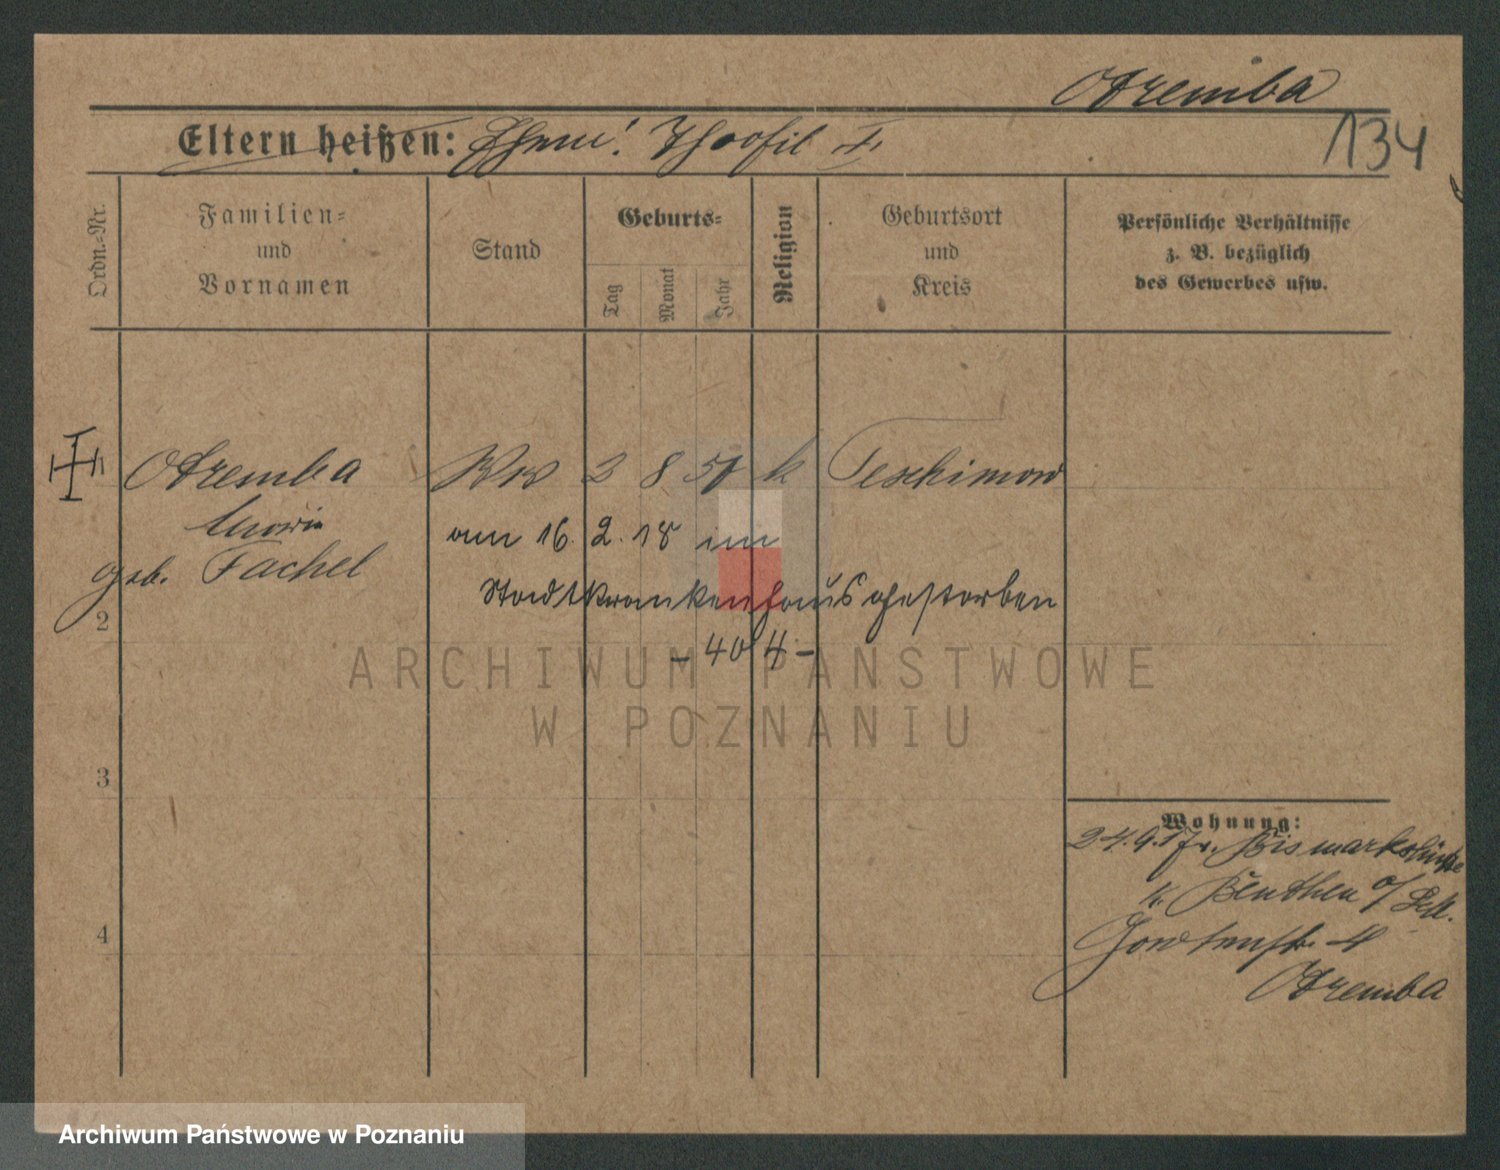 Otremba
134
Eltern heißen: Ehem: Theofil †.
Ordn.-Nr.
Familien-
und
Vornamen
Stand
Geburts-
Tag
Monat
Jahr
Religion
Geburtsort
und
Kreis
Persönliche Verhältnisse
z. B. bezüglich
des Gewerbes usw.
Otremba Ww 2 8 51 k Teschinow
Maria
geb. Fachel
am 16. 2. 18 im
Stadtkrankenhaus gestorben
- 404 -
2
3
4
Wohnung:
24.9.17 v. Bismarkshütte
b. Beuthen o/Schl.
4
Otremba
ARCHIWUM PAŃSTWOWE
W POZNANIU
Archiwum Państwowe w Poznaniu